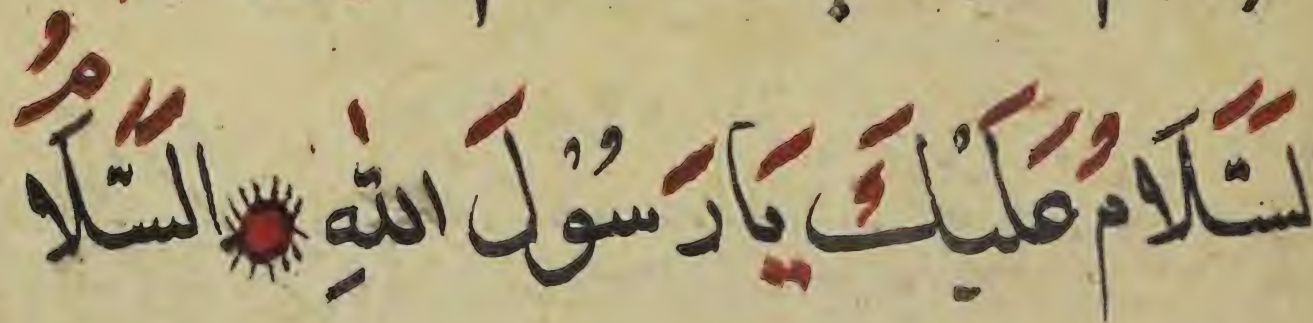 لسَّلَامُ عَلَيْكَ يَا رَسُولَ اللّٰهِ السَّلَامُ